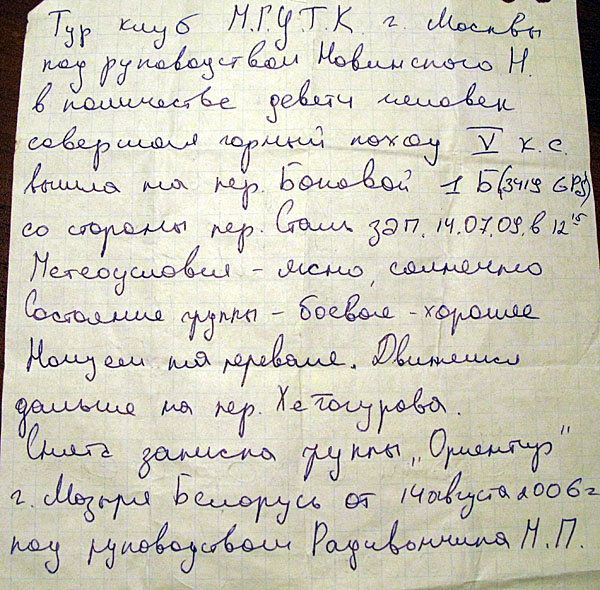 Тур клуб М.Г.У.Т.К. г. Москвы
под руководством Новинского Н.
в количестве девяти человек
совершая горный поход V к.с.
вышла на пер. Боковой 1 Б (3419 GPS)
со стороны пер. Сталь зап. 14.07.09. в 12¹⁵
Метеоусловия - ясно, солнечно
Состояние группы - боевое - хорошее
Ночуем на перевале. Движемся
дальше на пер. Хетагурова.
Снята записка группы „Ориентир"
г. Мозыря Белорусь от 14 августа 2006 г
под руководством Радивончика М.П.